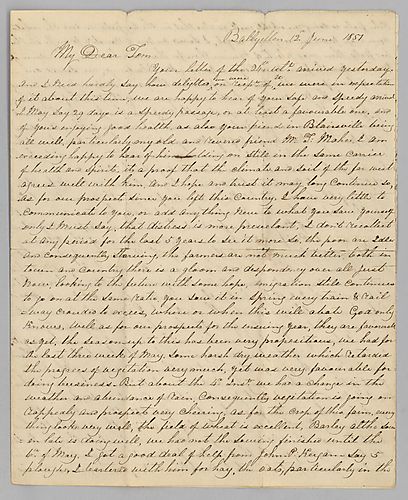 Ballyellen 12 June 1851
My Dear Tom
Your letter of the 21st ulto. arrived yesterday
and I need hardly say how delighted we were on rect. of it we were in expectation
of it about this time, we are happy to hear of your safe and speedy arrival
I may Say 29 days is a speedy passage, or at least a favourable one, and
of your enjoying good health, as also your friend in Blairsville being
all well, particularly my old and revered friend Mr. T. Maher, I am
exceeding happy to hear of him holding on still in the same Carrier
of health and spirits, its a proof that the climate and soil of the far west
agrees well with him, and I hope and trust it may long Continue so,
as for our prospects since you left this Country, I have very little to
Communicate to you, or add any thing new to what you saw yourself
only I must Say, that distress is more prevalent, I don't recollect
at any period for the last 5 years to see it more so, the poor are Idle
and Consequently Starving, the farmers are not much better, both in
town and Country there is a gloom and despondency over all Just
Now, looking to the future with some hope, emigration still continues
to go on at the same rate you saw it in Spring every train & Rail
way crowded to excess, where or when this will abate God only
Knows, well as for our prospects for the ensuing year, they are favourable
as yet, the season up to this has been very propositious, we had for
the last three weeks of May, Some harsh dry weather which retarded
the progress of vegetation very much, yet was very favourable for
doing business. But about the 1st Inst we had a change in the
weather an abundance of rain, Consequently vegetation is going on
rappedly and prospects very cheering, as for the crop of this farm, every
thing looks very well, the field of wheat is excellent, Barley altho sown
on late is doing well, we had not the sowing finished until the
of May, I got a good deal of help from John P Keyan say 5
ploughs, I bartered with him for hay, the oats, particularly in the